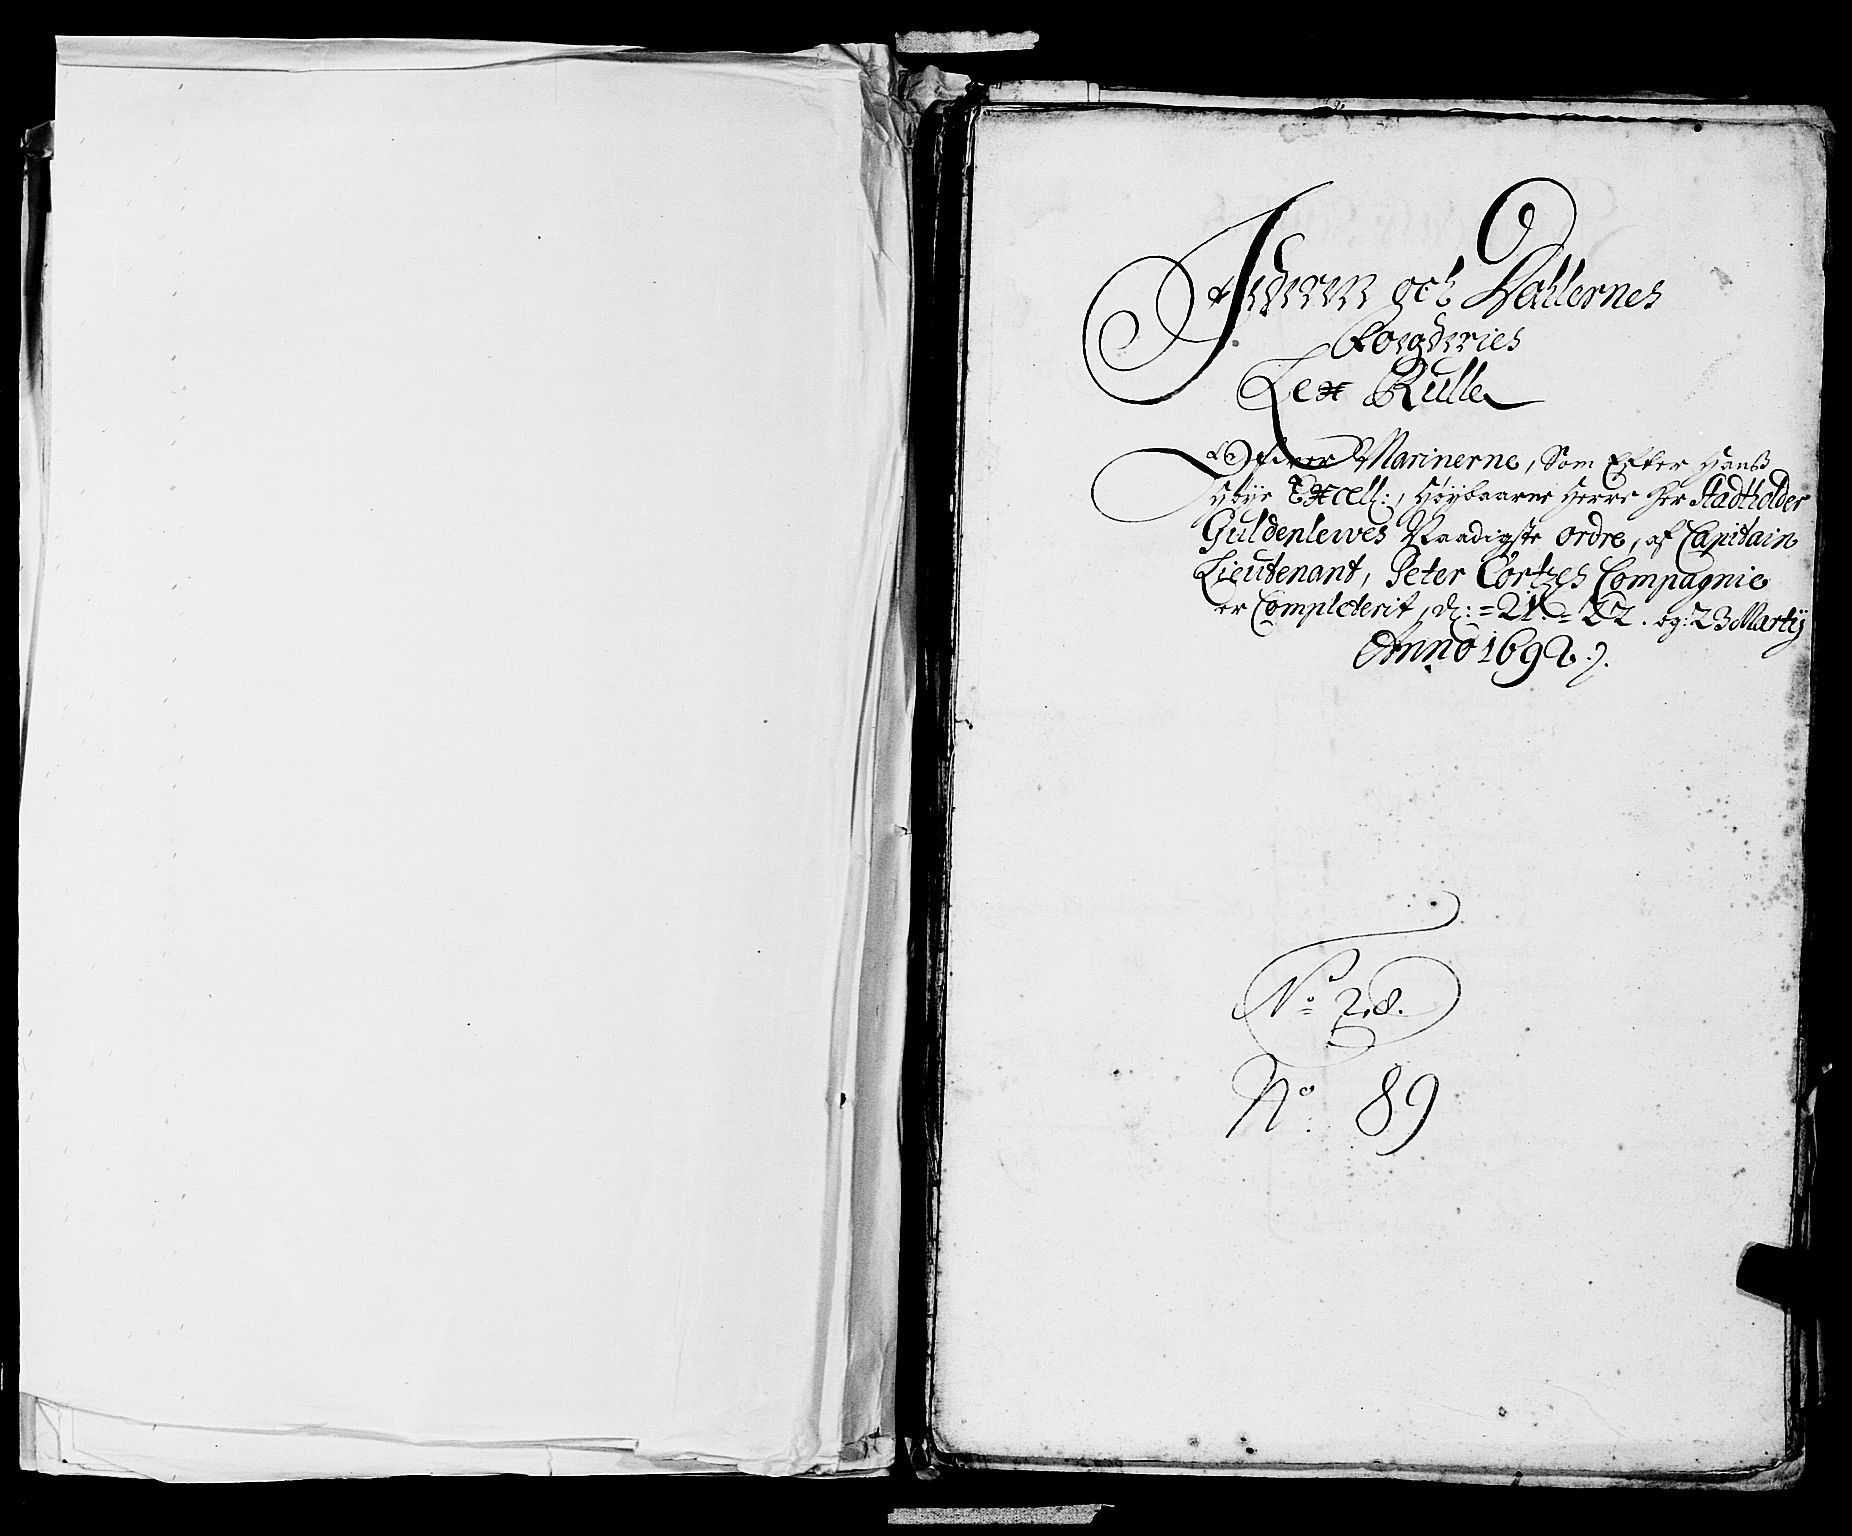 Jæderen och Dahlernes
Fougderies
Lex Rulle
Ofver Marinerne, Som Efter Hanß
Høye Excell:, Høybaarne Herre Her Stadtholder
Guldenlewes Naadigste ordre, af Capitain
Lieutenant, Peter Cortzes Compagnie
er Completerit, d: =21.=22. og: 23 Martij
Anno 1692.
No 28.
No 89